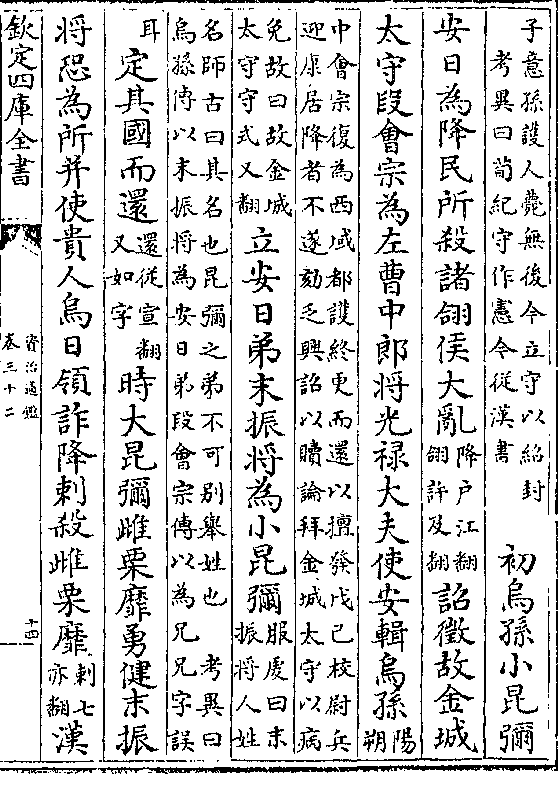 子意孫護人薨無後今立守以紹封
考異曰荀紀守作憲今從漢書
初烏孫小昆彌
安日為降民所殺諸翖侯大亂
降户江翻
翖許及翻
詔徵故金城
太守段會宗為左曹中郎將光禄大夫使安輯烏孫
陽
朔
中會宗復為西域都護終更而還以擅發戊己校尉兵
迎康居降者不遂劾乏興詔以贖論拜金城太守以病
免故曰故金城
太守守式又翻
立安日弟末振將為小昆彌
服虔曰末
振將人姓
名師古曰其名也昆彌之弟不可别舉姓也 考異曰
烏孫傳以末振將為安日弟段會宗傳以為兄兄字誤
耳
定其國而還
還從宣翻
又如字
時大昆彌雌栗靡勇健末振
將恐為所并使貴人烏日領詐降刺殺雌栗靡
刺七
亦翻
漢
欽定四庫全書
資治通鑑
卷三十二
十四